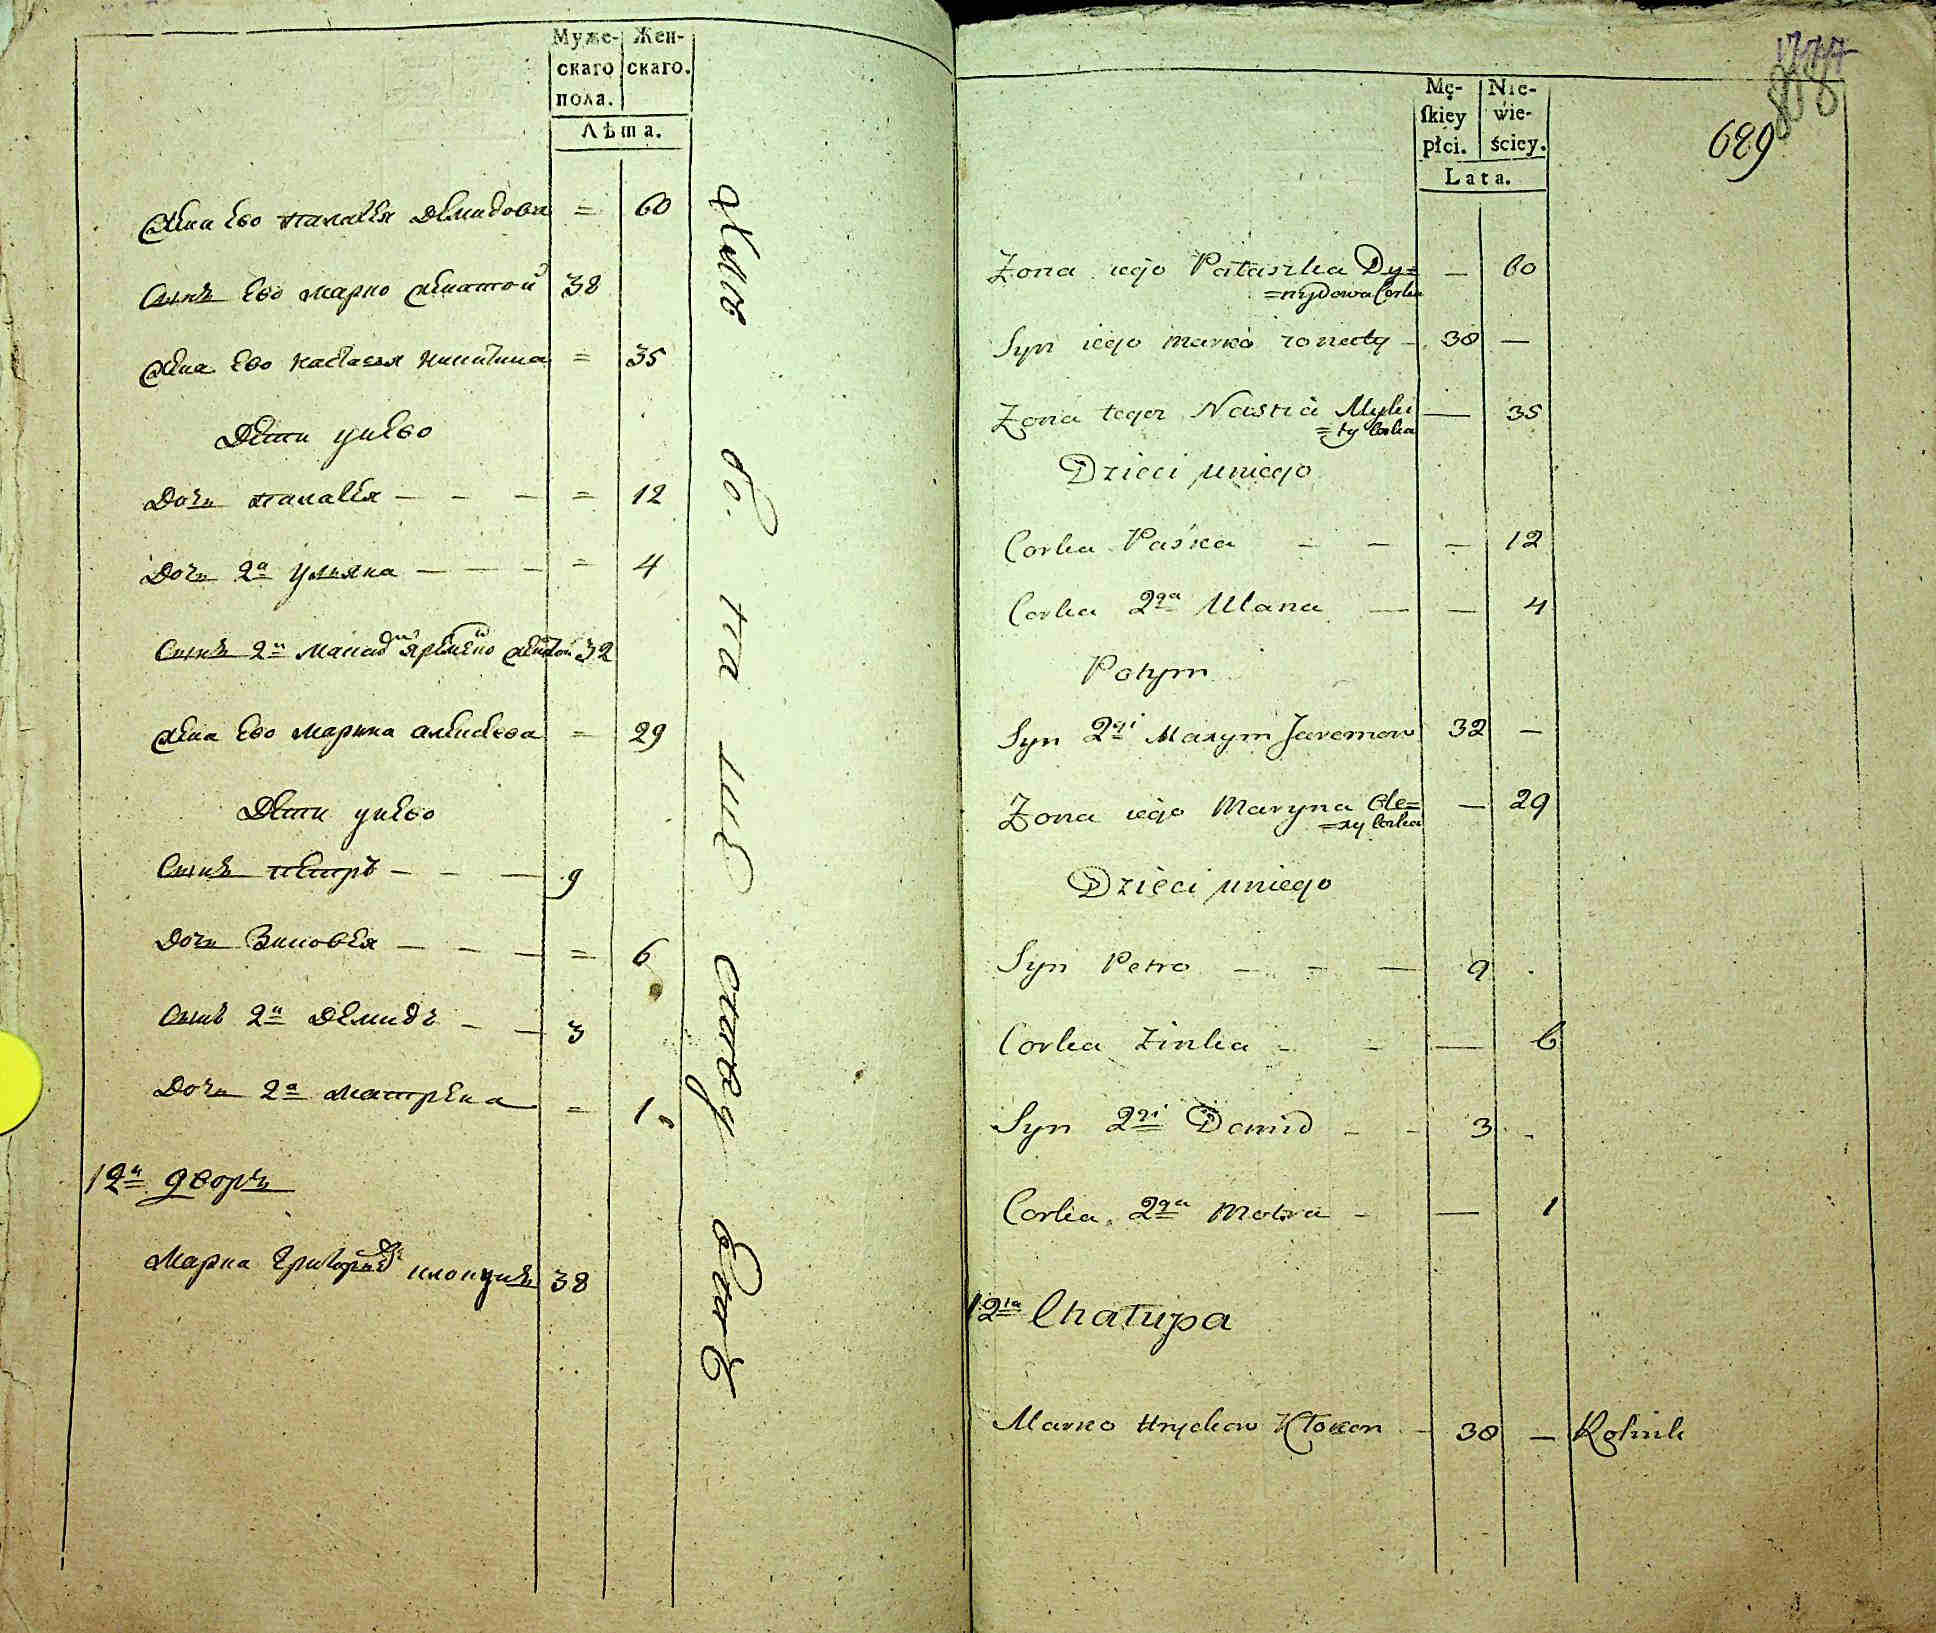 Муже- Жен-
скаго скаго.
пола.
Лѣта.
Жена Ево палаѣея демидова = 60
Сынъ Ево марко женатой 38
Жена Ево настасея никитина = 35
Дети унево
Дочь палаѣея — — — = 12
Дочь 2я ульяна — — — = 4
Сынъ 2й яремено женатой 32
Жена Ево марина алексеева = 29
Дети унево
Сынъ петръ — — — 9
Дочь Зиновея — — — = 6
Сынъ 2й демидъ — — 3
Дочь 2я матрена = 1
12й дворъ
Марка 38
1777
629
Mę- Nie-
ſkiey wie-
płci. ściey.
Lata.
Zona iego Pałaszka Dy=
=mydowa Corka — 60
Syn iego Marko zonaty — 38 —
Zona tegoz Nastia Myki
=ty Corka — 35
Dzieci uniego
Corka Paśka — — — 12
Corka 2ga Ulana — — 4
Potym
Syn 2gi Maxym Jaremow 32 —
Zona iego Maryna Ole=
=xy Corka — 29
Dzieci uniego
Syn Petro — — — 9
Corka Zinka — — — 6
Syn 2gi Demid — — 3 —
Corka 2ga Motra — — 1
12ta Chałupa
Marko Hryckow Kłokon — 38 — Rolnik